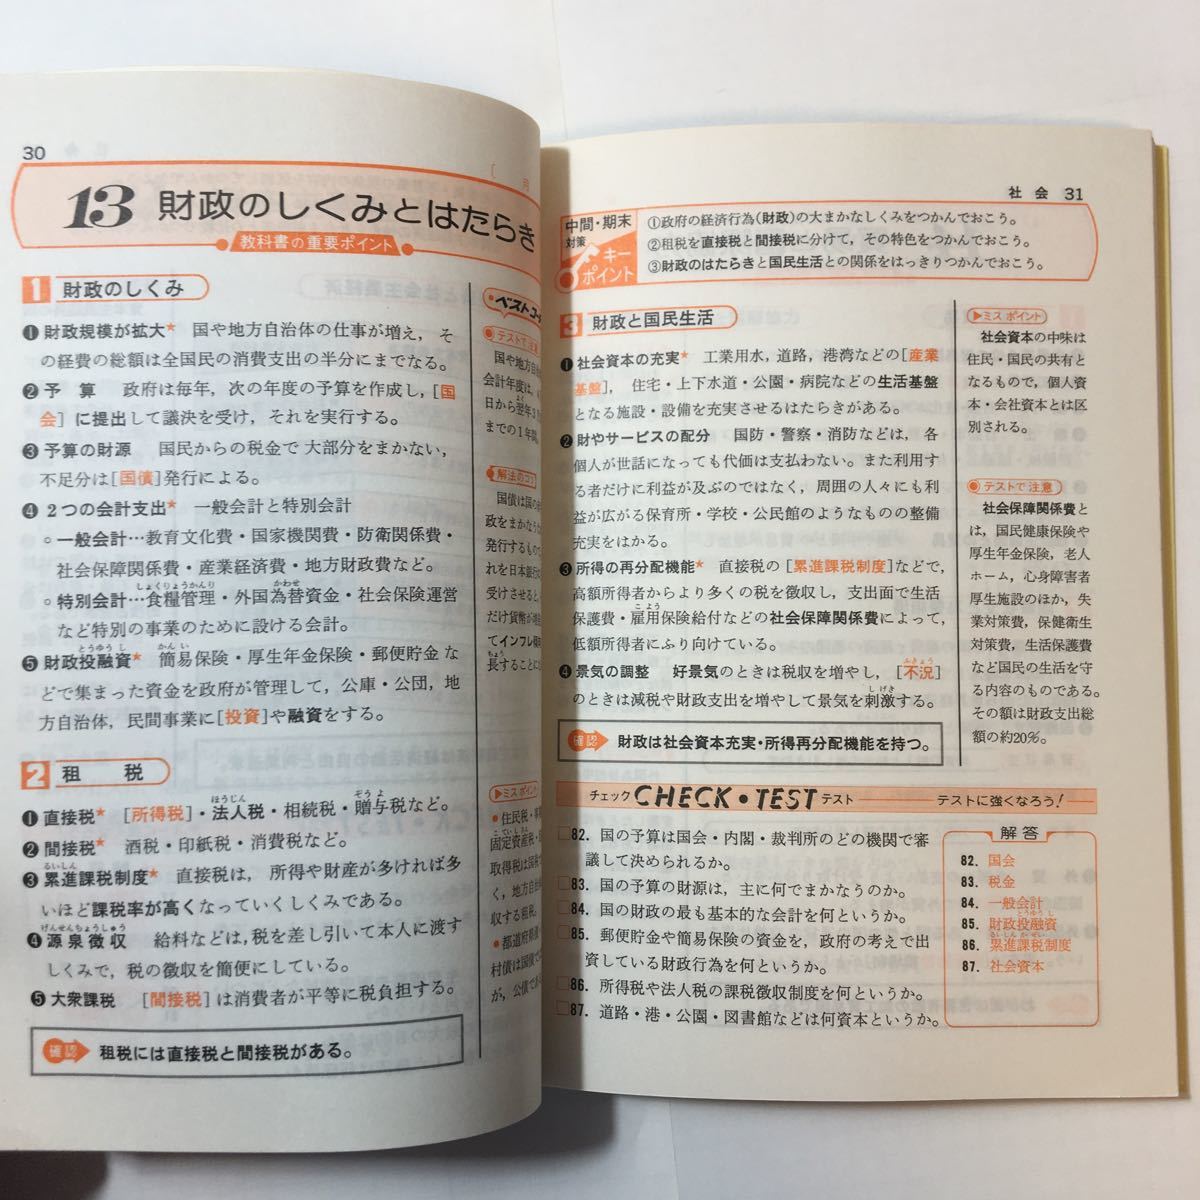 30
13 財政のしくみとはたらき
教科書の重要ポイント
1 財政のしくみ
❶ 財政規模が拡大★ 国や地方自治体の仕事が増え，そ
の経費の総額は全国民の消費支出の半分にまでなる。
❷ 予算 政府は毎年，次の年度の予算を作成し，[国
会]に提出して議決を受け，それを実行する。
❸ 予算の財源 国民からの税金で大部分をまかない，
不足分は[国債]発行による。
❹ 2つの会計支出★ 一般会計と特別会計
○一般会計…教育文化費・国家機関費・防衛関係費・
社会保障関係費・産業経済費・地方財政費など。
しょくりょうかんり かわせ
○特別会計…食糧管理・外国為替資金・社会保険運営
など特別の事業のために設ける会計。
とうゆうし かんい
❺ 財政投融資★ 簡易保険・厚生年金保険・郵便貯金な
どで集まった資金を政府が管理して，公庫・公団，地
方自治体，民間事業に[投資]や融資をする。
2 租税
ほうじん ぞうよ
❶ 直接税★ [所得税]・法人税・相続税・贈与税など。
❷ 間接税★ 酒税・印紙税・消費税など。
るいしん
❸ 累進課税制度★ 直接税は，所得や財産が多ければ多
いほど課税率が高くなっていくしくみである。
げんせんちょうしゅう
❹ 源泉徴収 給料などは，税を差し引いて本人に渡す
しくみで，税の徴収を簡便にしている。
❺ 大衆課税 [間接税]は消費者が平等に税負担する。
確認 租税には直接税と間接税がある。
ベストコー
テストで注意
国や地方自
会計年度は，
日から翌年3
までの1年間
解法のコツ
国債は国の
政をまかなう
発行するもの
れを日本銀行
受けさせると
だけ貨幣が増
てインフレ
長することに
ミスポイン
・住民税・事
固定資産税・
取得税は国税
く，地方自治
収する租税。
・都道府県債
村債は国債で
が，公債であ
社会 31
中間・期末
対策
キー
ポイント
①政府の経済行為(財政)の大まかなしくみをつかんでおこう。
②租税を直接税と間接税に分けて，その特色をつかんでおこう。
③財政のはたらきと国民生活との関係をはっきりつかんでおこう。
3 財政と国民生活
❶ 社会資本の充実★ 工業用水，道路，港湾などの[産業
基盤]，住宅・上下水道・公園・病院などの生活基盤
となる施設・設備を充実させるはたらきがある。
❷ 財やサービスの配分 国防・警察・消防などは，各
個人が世話になっても代価は支払わない。また利用す
る者だけに利益が及ぶのではなく，周囲の人々にも利
益が広がる保育所・学校・公民館のようなものの整備
充実をはかる。
❸ 所得の再分配機能★ 直接税の[累進課税制度]などで，
高額所得者からより多くの税を徴収し，支出面で生活
こよう
保護費・雇用保険給付などの社会保障関係費によって，
低額所得者にふり向けている。
ふきょう
❹ 景気の調整 好景気のときは税収を増やし，[不況]
しげき
のときは減税や財政支出を増やして景気を刺激する。
確認 財政は社会資本充実・所得再分配機能を持つ。
ミスポイント
社会資本の中味は
住民・国民の共有と
なるもので，個人資
本・会社資本とは区
別される。
テストで注意
社会保障関係費と
は，国民健康保険や
厚生年金保険，老人
ホーム，心身障害者
厚生施設のほか，失
業対策費，保健衛生
対策費，生活保護費
など国民の生活を守
る内容のものである。
その額は財政支出総
額の約20%。
チェック CHECK・TEST テスト テストに強くなろう！
□82. 国の予算は国会・内閣・裁判所のどの機関で審
議して決められるか。
□83. 国の予算の財源は，主に何でまかなうのか。
□84. 国の財政の最も基本的な会計を何というか。
□85. 郵便貯金や簡易保険の資金を，政府の考えで出
資している財政行為を何というか。
□86. 所得税や法人税の課税徴収制度を何というか。
□87. 道路・港・公園・図書館などは何資本というか。
解答
82. 国会
83. 税金
84. 一般会計
とうゆうし
85. 財政投融資
るいしんかぜい
86. 累進課税制度
87. 社会資本